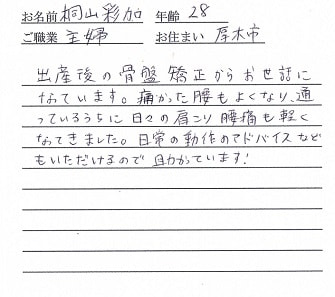 お名前 桐山彩加 年齢 28
ご職業 主婦 お住まい 厚木市
出産後の骨盤矯正からお世話に
なっています。痛かった腰もよくなり、通
っているうちに日々の肩こり腰痛も軽く
なってきました。日常の動作のアドバイスなど
もいただけるので助かっています!